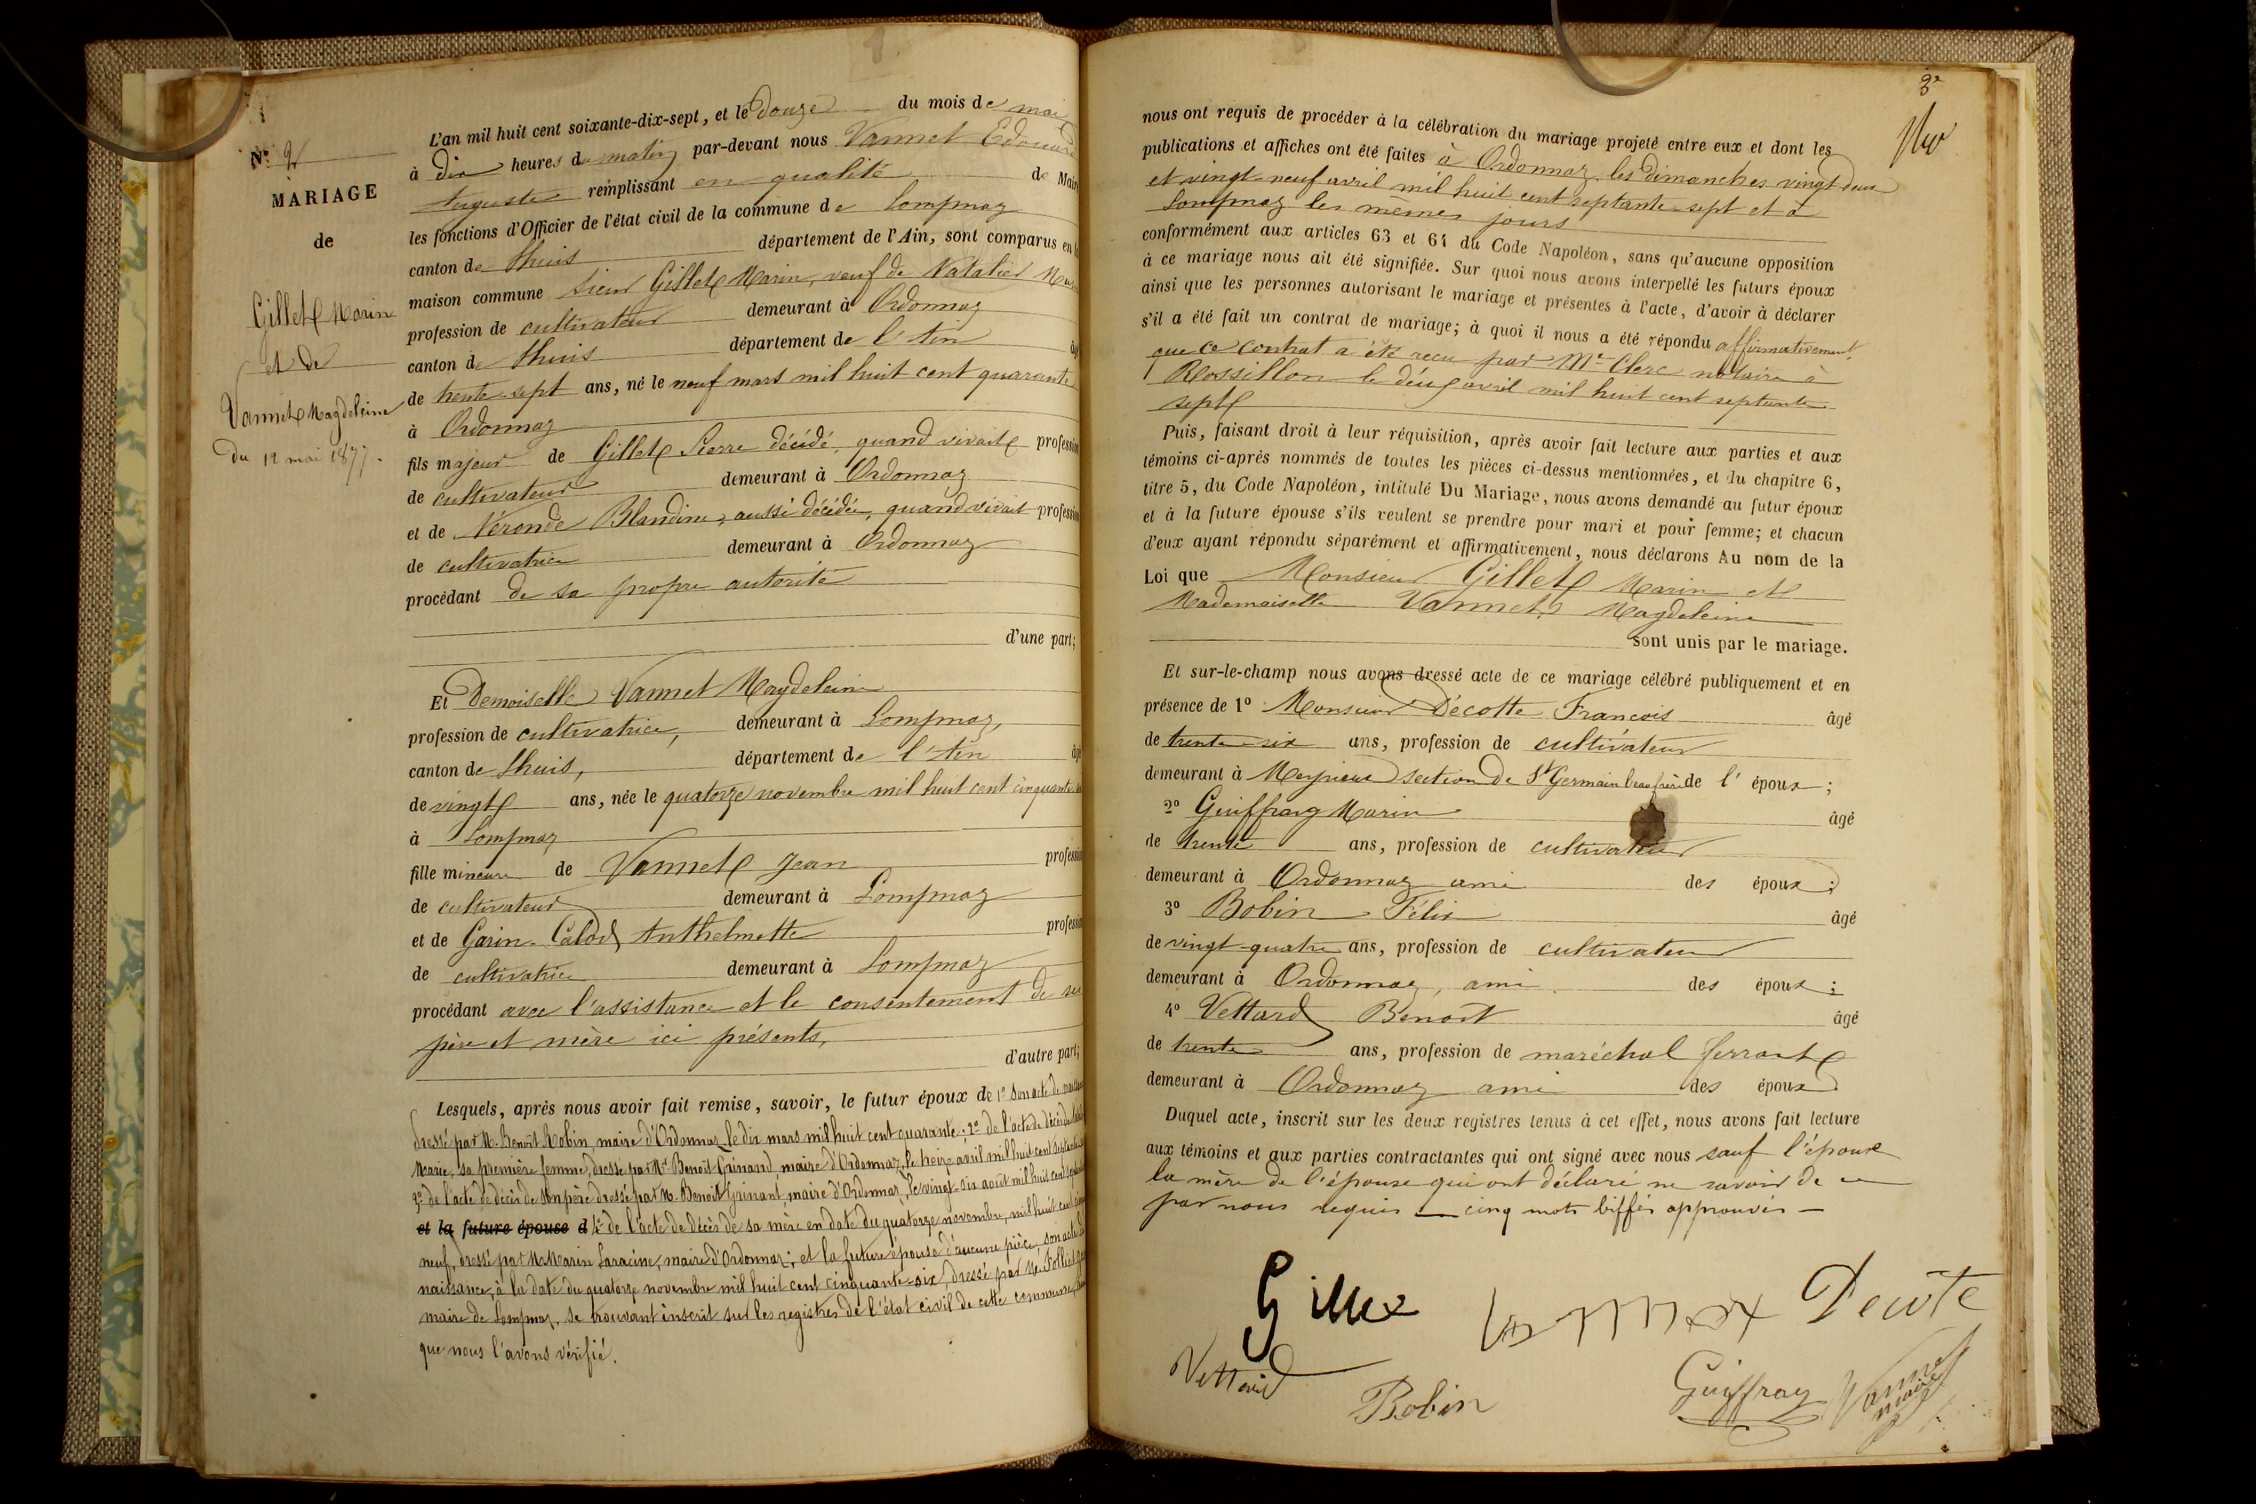 N° 2
MARIAGE
de
Gillet Marin
et de
Vannet Magdeleine
du 12 mai 1877.
L'an mil huit cent soixante-dix-sept, et le douze du mois de mai
à dix heures du matin par-devant nous Vannet Edouard
Auguste remplissant en qualité de Maire
les fonctions d'Officier de l'état civil de la commune de Lompnaz
canton de Lhuis département de l'Ain, sont comparus en la
maison commune sieur Gillet Marin, veuf de Natalier
profession de cultivateur demeurant à Ordonnaz
canton de Lhuis département de l'Ain âgé
de trente-sept ans, né le neuf mars mil huit cent quarante
à Ordonnaz
fils majeur de Gillet Pierre décédé, quand vivait profession
de cultivateur demeurant à Ordonnaz
et de Véronde Blandine, aussi décédée, quand vivait profession
de cultivatrice demeurant à Ordonnaz
procédant de sa propre autorité
d'une part;
Et Demoiselle Vannet Magdeleine
profession de cultivatrice, demeurant à Lompnaz,
canton de Lhuis, département de l'Ain âgé
de vingt ans, née le quatorze novembre mil huit cent cinquante
à Lompnaz
fille mineure de Vannet Jean profession
de cultivateur demeurant à Lompnaz
et de Garin-Calod Anthelmette profession
de cultivatrice demeurant à Lompnaz
procédant avec l'assistance et le consentement de ses
père et mère ici présents,
d'autre part;
Lesquels, après nous avoir fait remise, savoir, le futur époux de 1° son acte de
dressé par M. Benoît Robin, maire d'Ordonnaz le dix mars mil huit cent quarante; 2° de l'acte de décès de
Marie, sa première femme, dressé par Mr Benoît Grinand, maire d'Ordonnaz, le treize avril mil huit cent
3° de l'acte de décès de son père dressé par M. Benoît Grinand, maire d'Ordonnaz, le vingt-six août mil huit cent
et la future épouse d 4° de l'acte de décès de sa mère en date du quatorze novembre, mil huit cent
neuf, dressé par M. Marin Laracine, maire d'Ordonnaz; et la future épouse d'aucune pièce, son acte de
naissance, à la date du quatorze novembre mil huit cent cinquante-six, dressé par Mr Folliet
maire de Lompnaz, se trouvant inscrit sur les registres de l'état civil de cette commune,
que nous l'avons vérifié.
nous ont requis de procéder à la célébration du mariage projeté entre eux et dont les
publications et affiches ont été faites à Ordonnaz les dimanches vingt deux
et vingt-neuf avril mil huit cent septante-sept et à
Lompnaz les mêmes jours
conformément aux articles 63 et 64 du Code Napoléon, sans qu'aucune opposition
à ce mariage nous ait été signifiée. Sur quoi nous avons interpellé les futurs époux
ainsi que les personnes autorisant le mariage et présentes à l'acte, d'avoir à déclarer
s'il a été fait un contrat de mariage; à quoi il nous a été répondu affirmativement,
que ce contrat a été reçu par Me Clerc notaire à
Rossillon le deux avril mil huit cent septante-
sept
Puis, faisant droit à leur réquisition, après avoir fait lecture aux parties et aux
témoins ci-après nommés de toutes les pièces ci-dessus mentionnées, et du chapitre 6,
titre 5, du Code Napoléon, intitulé Du Mariage, nous avons demandé au futur époux
et à la future épouse s'ils veulent se prendre pour mari et pour femme; et chacun
d'eux ayant répondu séparément et affirmativement, nous déclarons Au nom de la
Loi que Monsieur Gillet Marin et
Mademoiselle Vannet Magdeleine
sont unis par le mariage.
Et sur-le-champ nous avons dressé acte de ce mariage célébré publiquement et en
présence de 1° Monsieur Décotte François âgé
de trente-six ans, profession de cultivateur
demeurant à Meyrieux section de St Germain beau frère de l'époux;
2° Guiffray Marin âgé
de trente ans, profession de cultivateur
demeurant à Ordonnaz ami des époux;
3° Bobin Félix âgé
de vingt-quatre ans, profession de cultivateur
demeurant à Ordonnaz, ami des époux;
4° Vettard Benoit âgé
de trente ans, profession de maréchal ferrant
demeurant à Ordonnaz ami des époux
Duquel acte, inscrit sur les deux registres tenus à cet effet, nous avons fait lecture
aux témoins et aux parties contractantes qui ont signé avec nous sauf l'épouse
la mère de l'épouse qui ont déclaré ne savoir de ce
par nous requis — cinq mots biffés approuvés —
Gillet Vannet Décote
Vettard Bobin Guiffray Vannet
maire